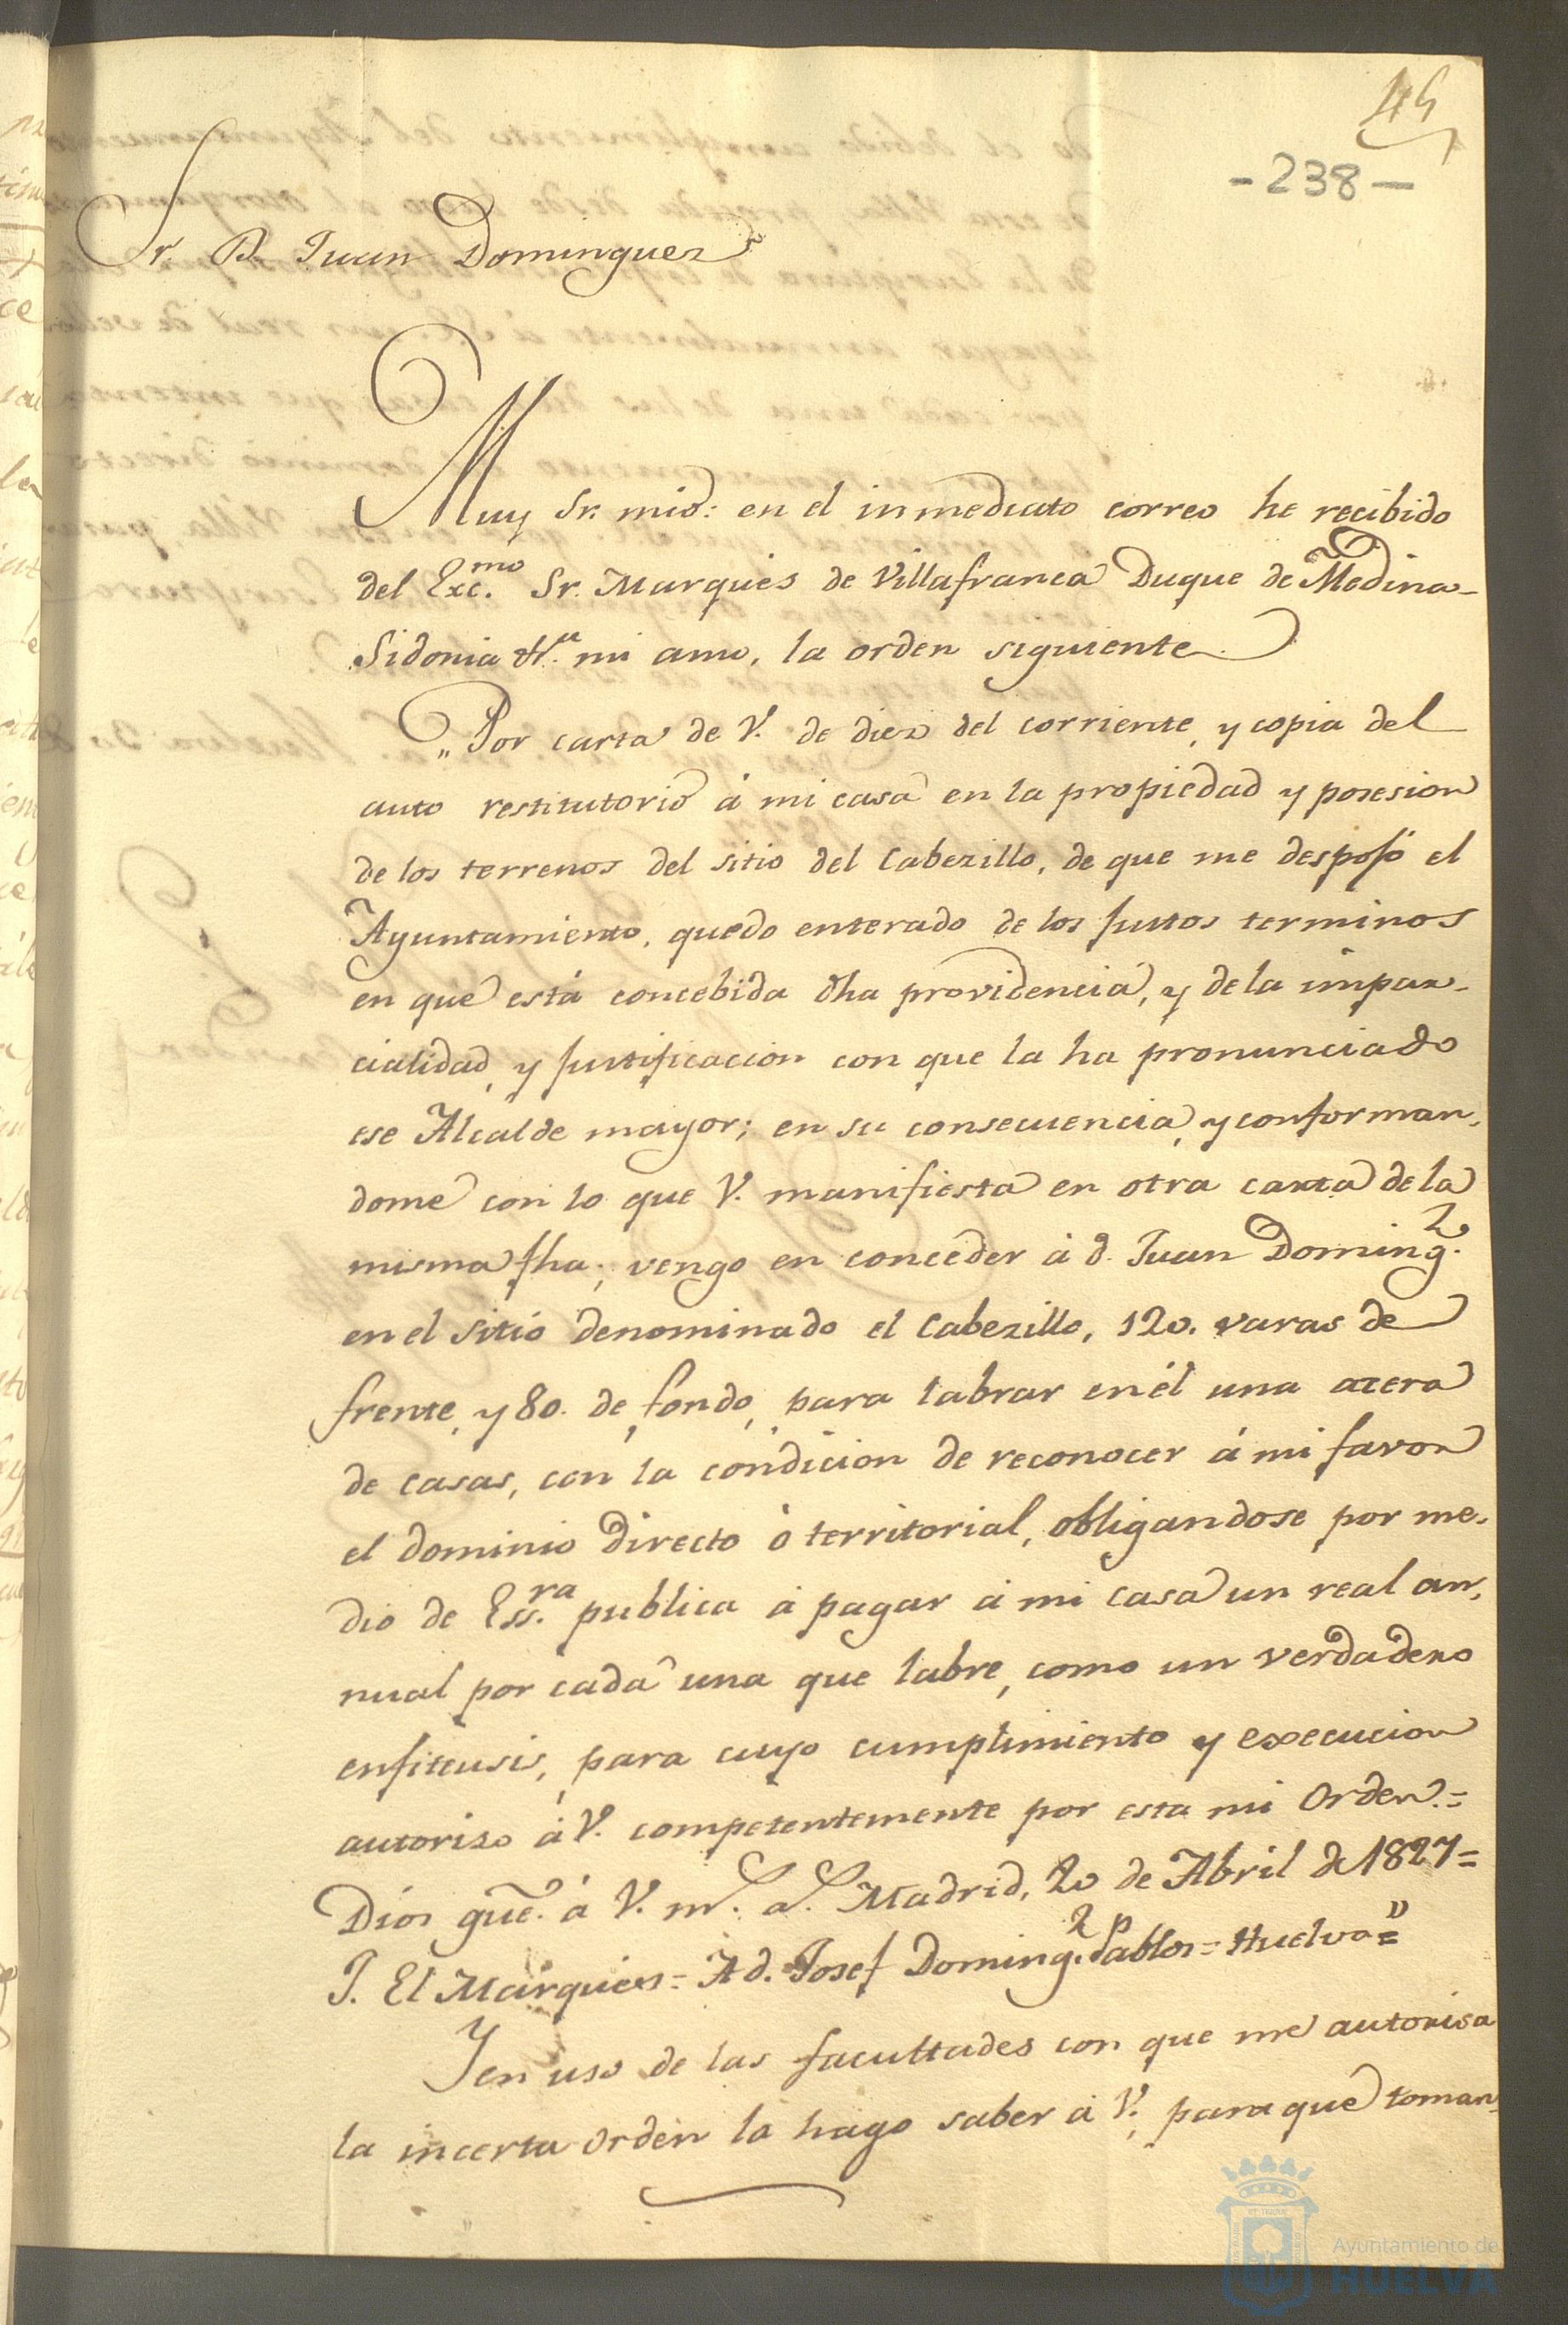 45
-238-
Sr. D. Juan Dominguez
Muy Sr. mio: en el inmediato correo he recibido
del Exc.mo Sr. Marques de Villafranca Duque de Medina-
Sidonia &.a mi amo, la orden siguiente.
"Por carta de V. de diez del corriente, y copia del
auto restitutorio á mi casa en la propiedad y posesion
de los terrenos del sitio del Cabezillo, de que me despojó el
Ayuntamiento, quedo enterado de los justos terminos
en que está concebida dha providencia, y de la impar-
cialidad, y justificacion con que la ha pronunciado
ese Alcalde mayor; en su consecuencia, y conforman-
dome con lo que V. manifiesta en otra carta de la
misma fha; vengo en conceder á d. Juan Doming.z
en el sitio denominado el Cabezillo, 120. varas de
frente, y 80. de fondo, para labrar en él una acera
de casas, con la condicion de reconocer á mi favor
el dominio directo ó territorial, obligandose por me-
dio de Ess.ra publica á pagar á mi casa un real an-
nual por cada una que labre, como un verdadero
enfiteusis, para cuyo cumplimiento y execucion
autorizo á V. competentemente por esta mi Orden.=
Dios gue. á V. m.s a.s Madrid, 20 de Abril de 1827=
P. El Marques= A d. Josef Doming.z Pablos= Huelva="
Y en uso de las facultades con que me autorisa
la incerta orden la hago saber á V. para que toman-
Ayuntamiento de
HUELVA